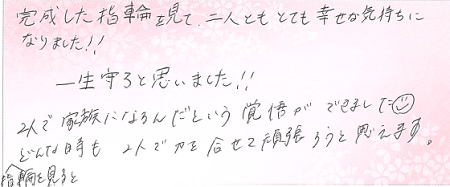 完成した指輪を見て、二人とも とても幸せな気持ちに
なりました!!
一生守ろと思いました!!
2人で家族になるんだという覚悟ができました
どんな時も 2人で力を合せて頑張ろうと思えます。
指輪を見ると